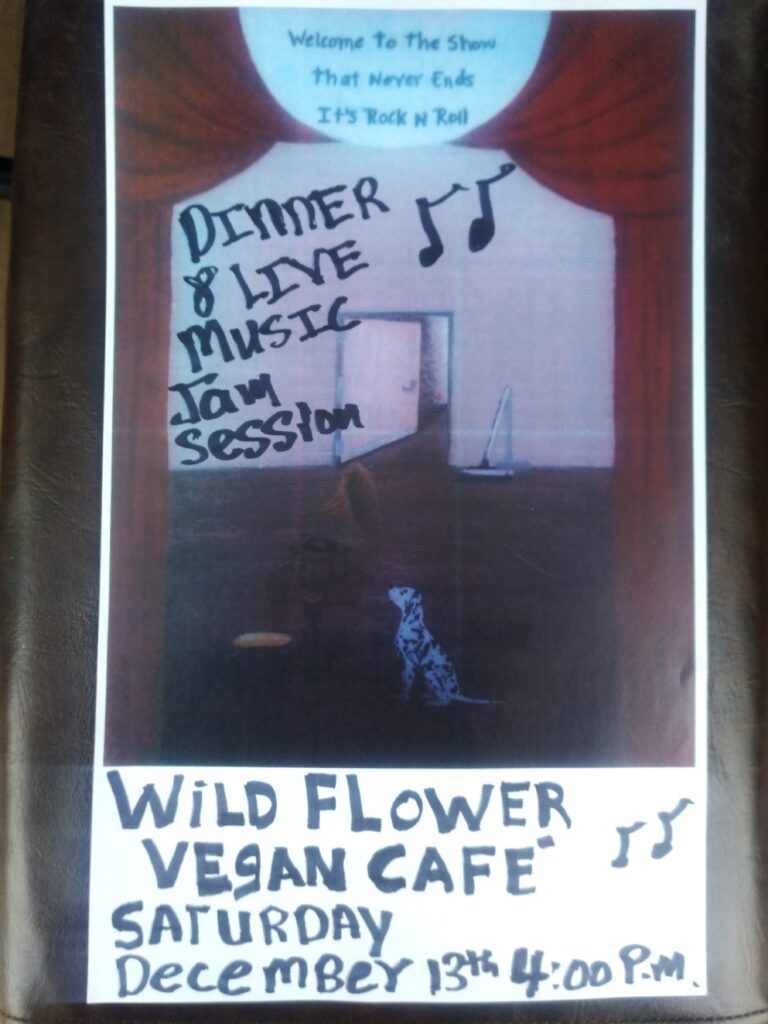 Welcome to The Show
That Never Ends
It's Rock N Roll
DINNER
& LIVE
MUSIC
Jam
Session
WiLD FLOWER
VEgAN CAFE
SATURDAY
December 13th 4:00 P.m.